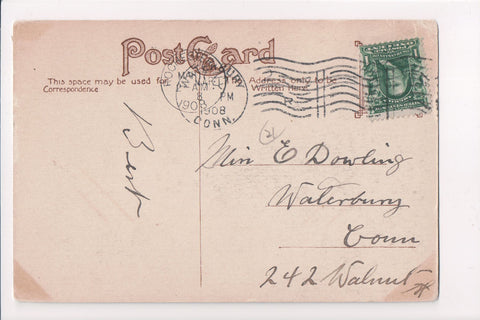 Post Card
This space may be used for
Correspondence
Address only to be
Written Here.
WATERBURY
AM
PM
1908
CONN.
Bert
Miss E Dowling
Waterbury
Conn
242 Walnut